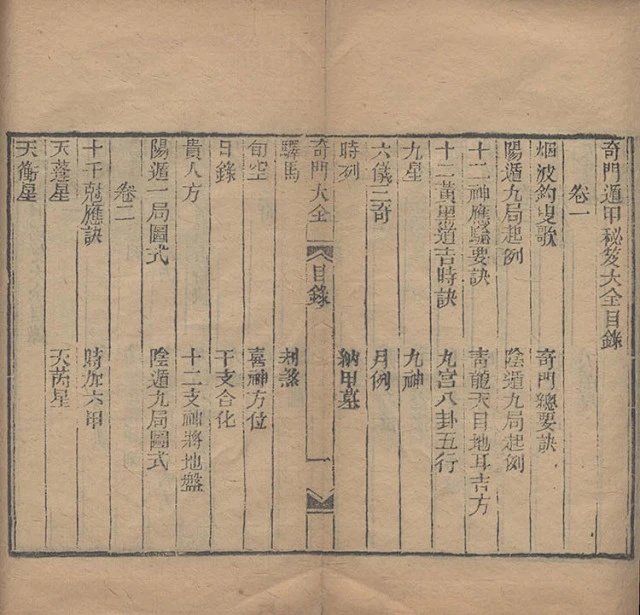 奇門遁甲秘笈大全目錄
卷一
烟波釣叟歌 奇門總要訣
陽遁九局起例 陰遁九局起例
十二神應驗要訣 青龍天目地耳吉方
十二黃黑道吉時訣 九宮八卦五行
九星 九神
六儀三奇 月例
時刻 納甲墓
奇門大全 目錄 一
驛馬 刑煞
旬空 喜神方位
日錄 干支合化
貴人方 十二支神將地盤
陽遁一局圖式 陰遁九局圖式
卷二
十干尅應訣 時加六甲
天蓬星 天芮星
天衝星